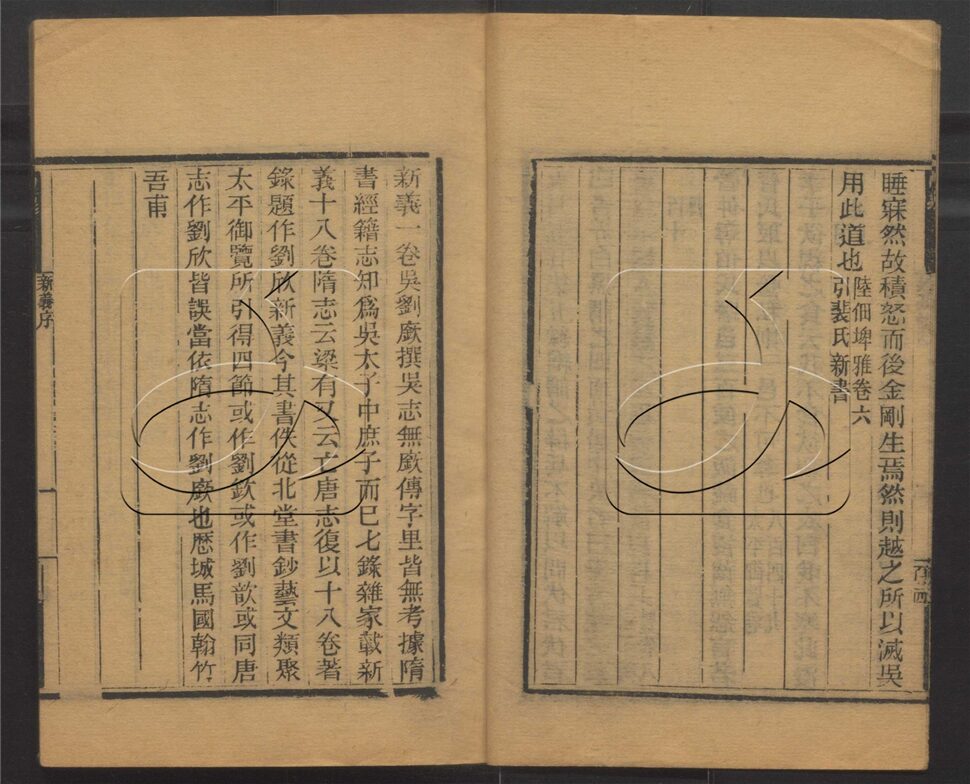 睡寐然故積怒而後金剛生焉然則越之所以滅吳
用此道也
陸佃埤雅卷六
引裴氏新書
新義一卷吳劉廞撰吳志無廞傳字里皆無考據隋
書經籍志知爲吳太子中庶子而已七錄雜家載新
義十八卷隋志云梁有又云亡唐志復以十八卷著
錄題作劉欣新義今其書佚從北堂書鈔藝文類聚
太平御覽所引得四節或作劉欽或作劉歆或同唐
志作劉欣皆誤當依隋志作劉廞也厯城馬國翰竹
吾甫
新義序
一